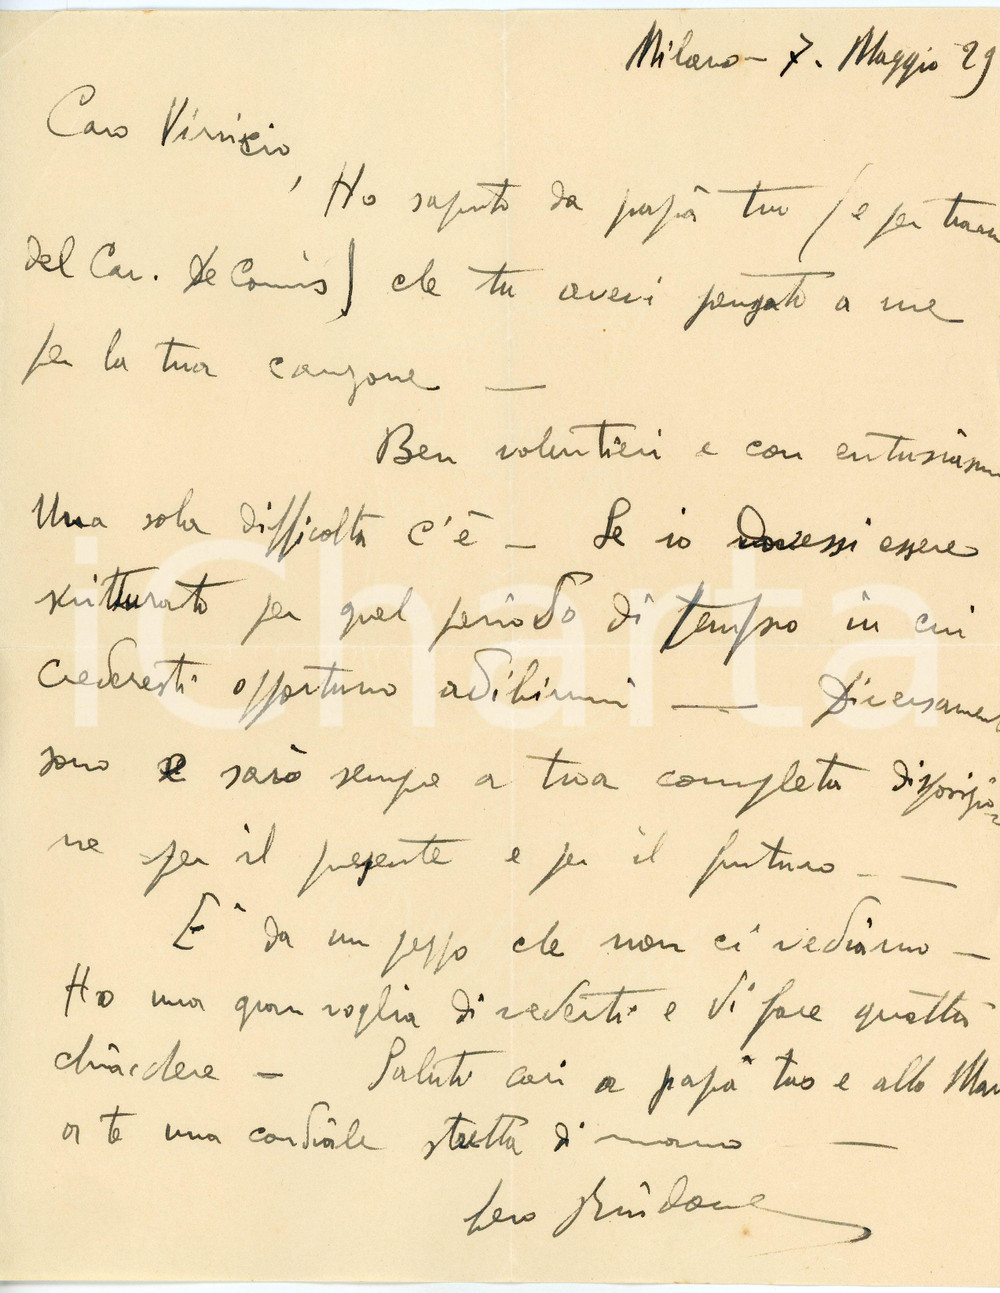 Milano - 7. Maggio 29
Caro Vinicio,
Ho saputo da papà tuo (e per
del Cav. De Comis) che tu avevi pensato a me
per la tua canzone —
Ben volentieri e con
Una sola difficoltà c'è — Se io dovessi essere
scritturato per quel periodo di tempo in cui
crederesti opportuno adibirmi —
sono e sarò sempre a tua completa disposizio=
ne per il presente e per il futuro — —
E' da un pezzo che non ci vediamo —
Ho una gran voglia di vederti e di fare quattro
chiacchere — Saluti cari a papà tuo e allo
a te una cordiale stretta di mano —
iCharta